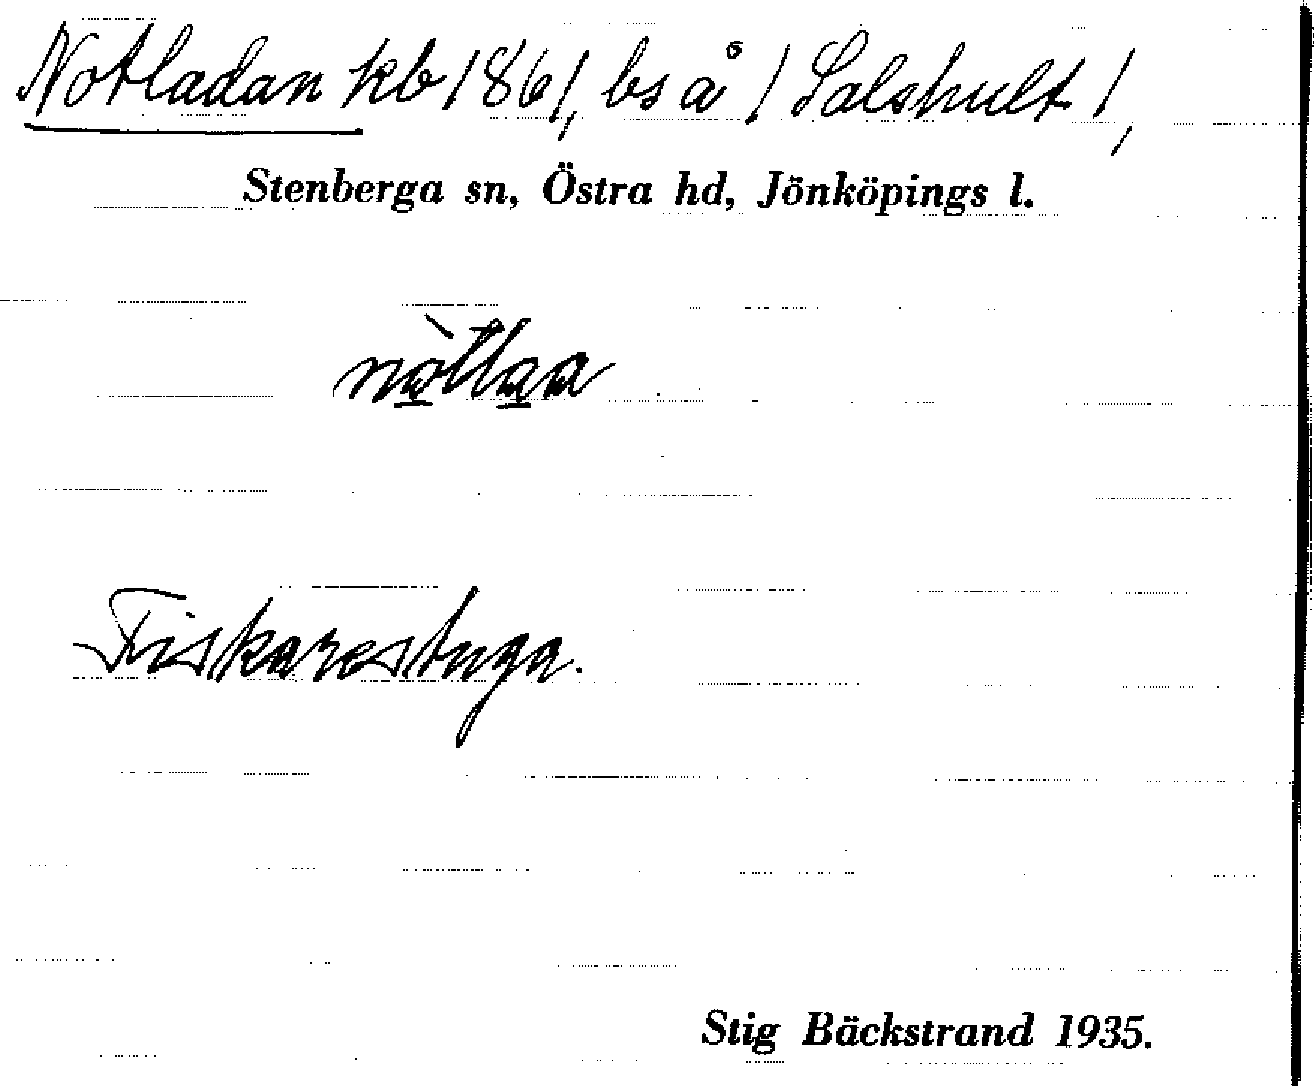 Notladan kb 1861, bs å 1 Salshult 1,
Stenberga sn, Östra hd, Jönköpings l.
Fiskarestuga.
Stig Bäckstrand 1935.